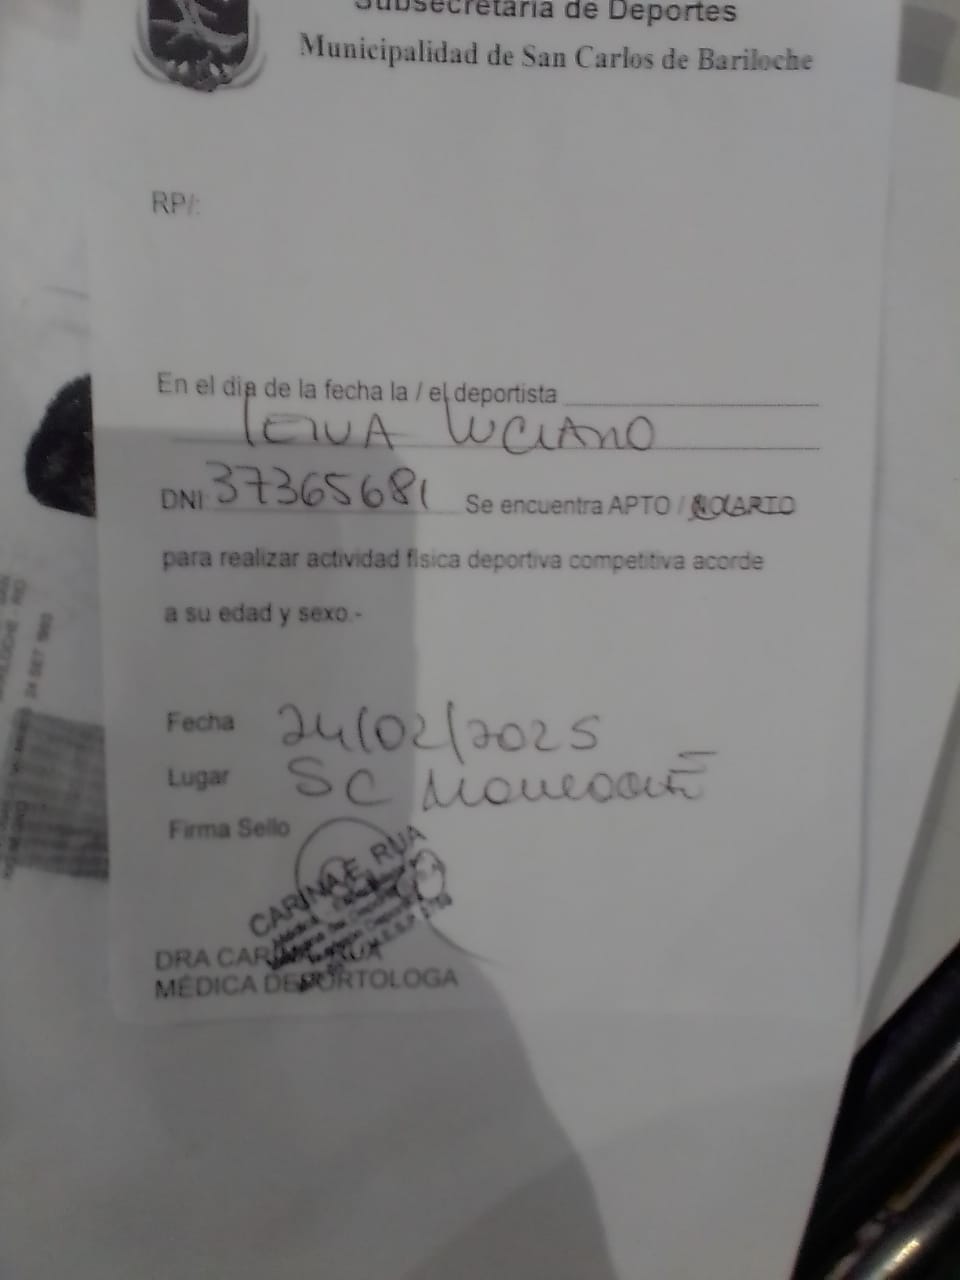 Subsecretaría de Deportes
Municipalidad de San Carlos de Bariloche
RP/:
En el día de la fecha la / el deportista
LEIVA LUCIANO
DNI 37365681 Se encuentra APTO /
para realizar actividad física deportiva competitiva acorde
a su edad y sexo.-
Fecha 24/02/2025
Lugar SC
Firma Sello
CARINA E. RUA
DRA CARINA RUA
MÉDICA DEPORTOLOGA
24 SET 1993